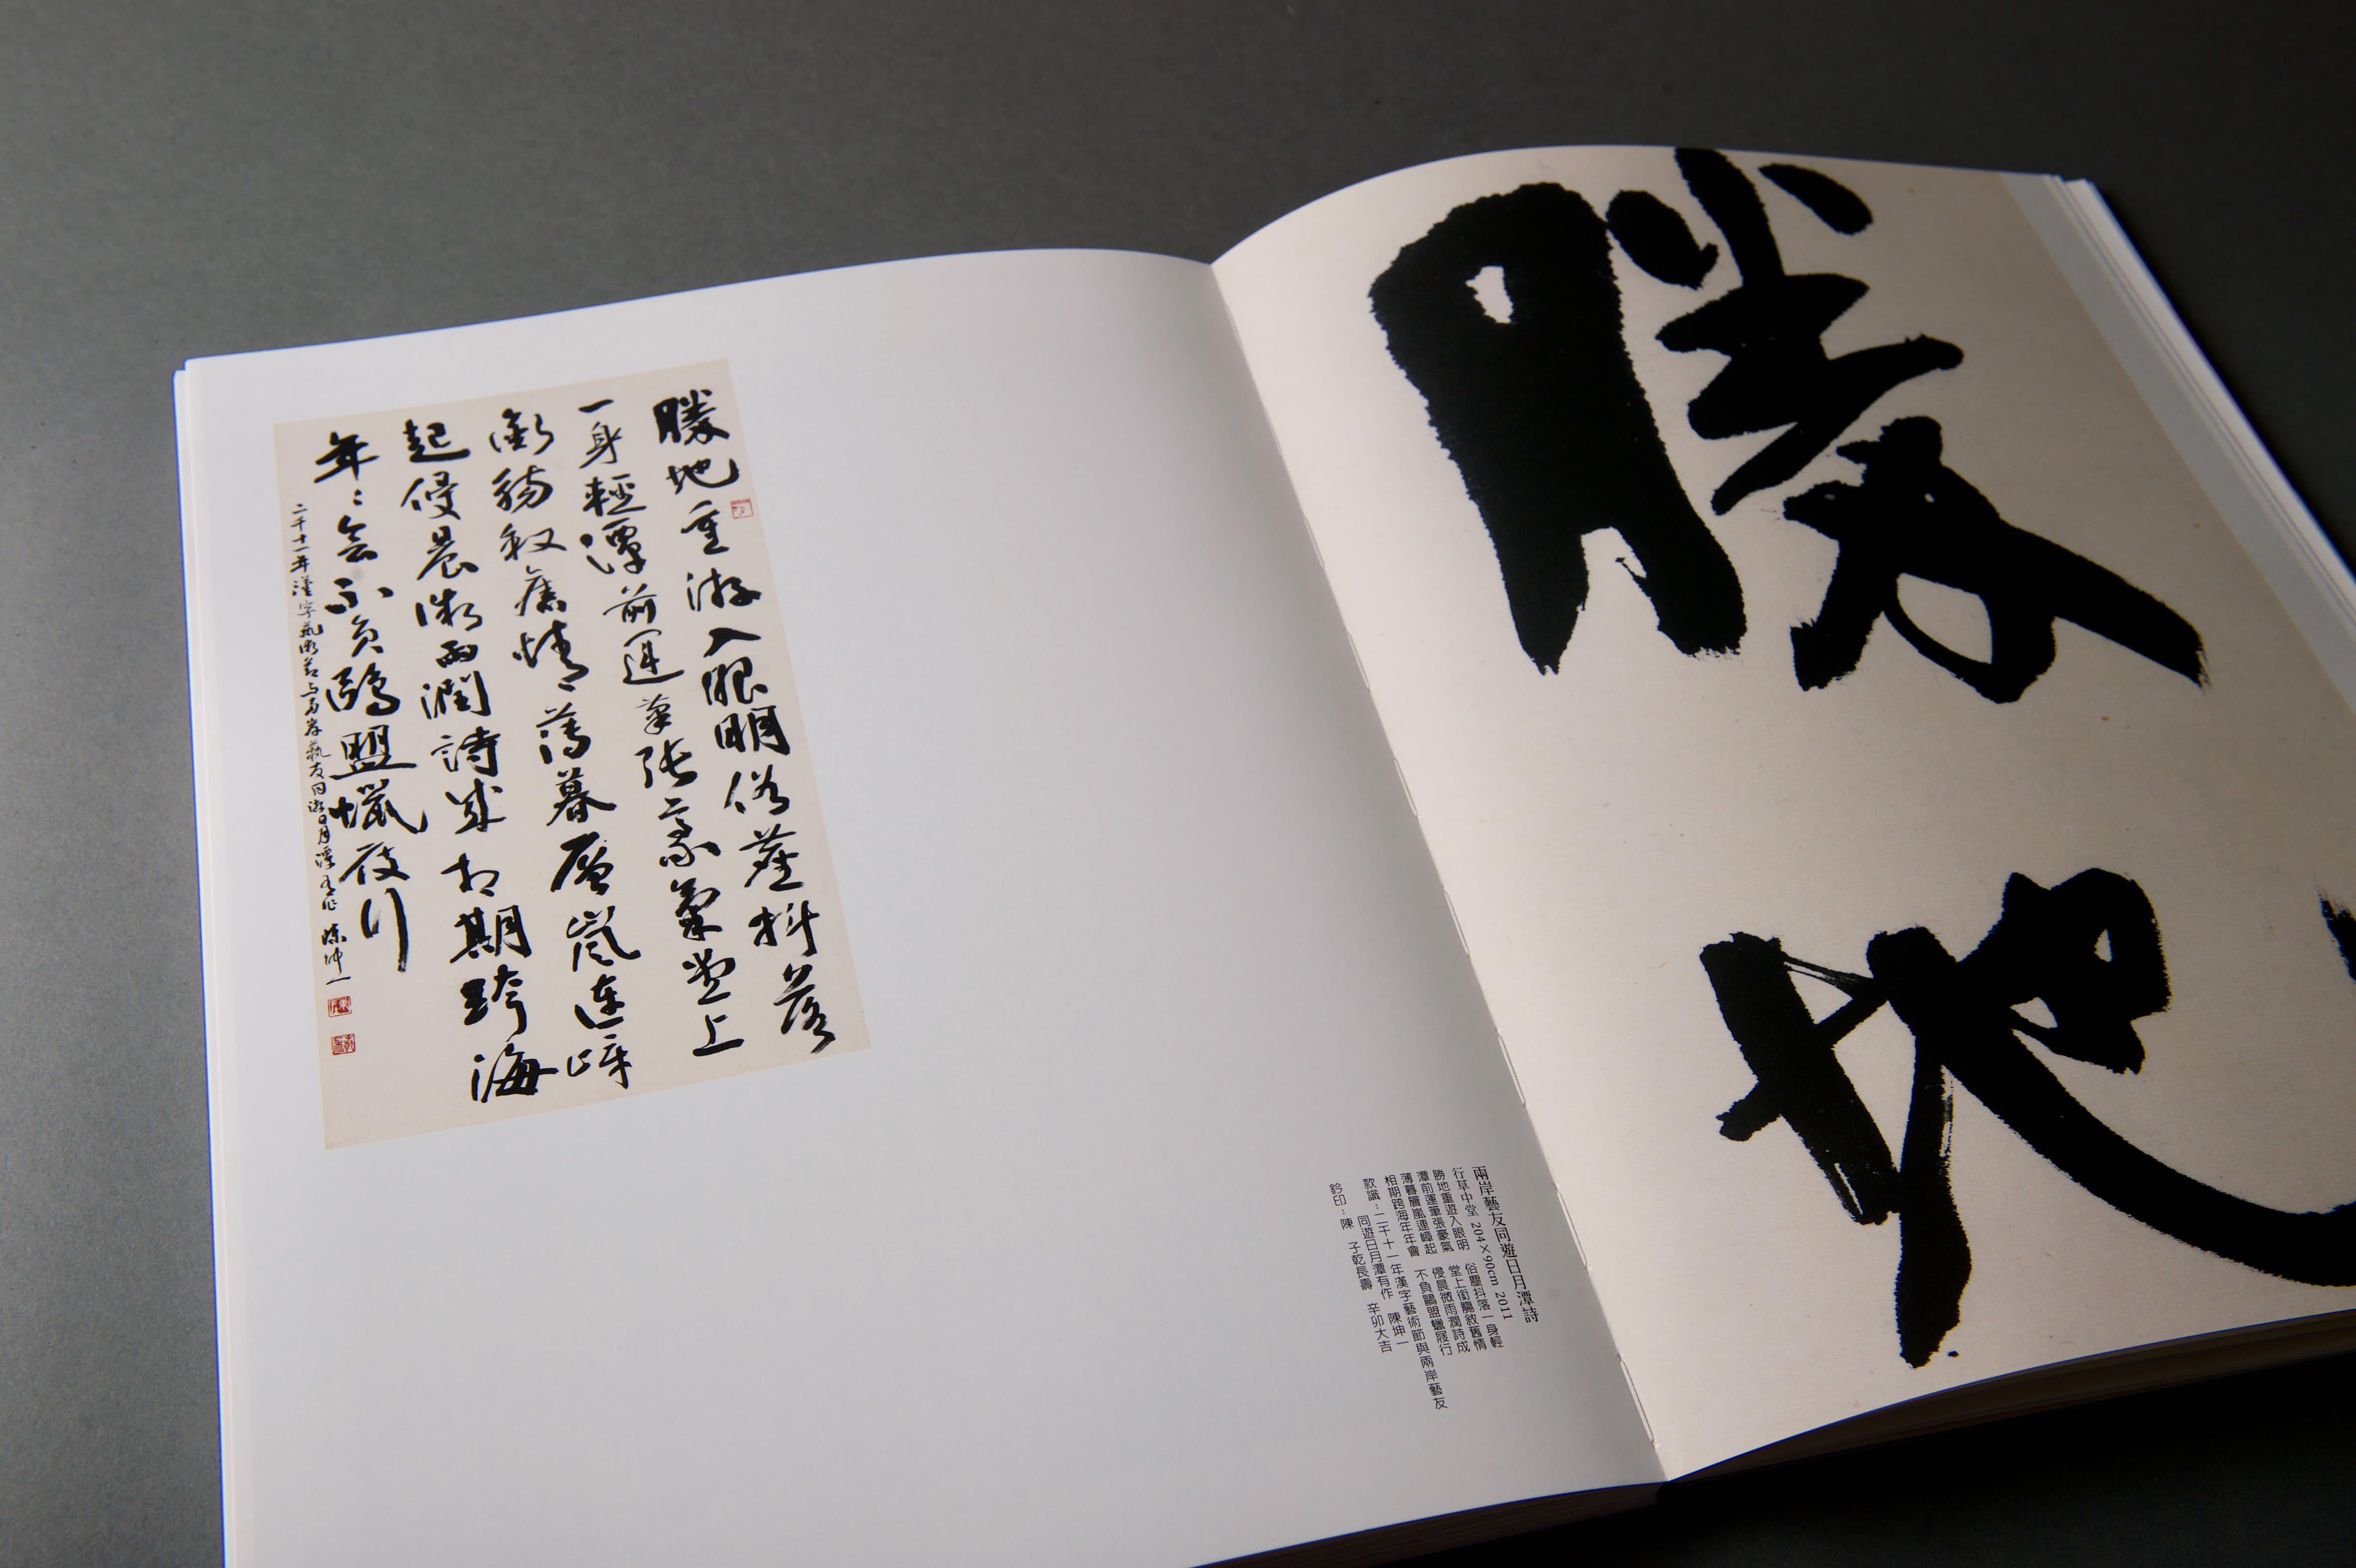 勝地
兩岸藝友同遊日月潭詩
行草中堂 204×90cm 2011
勝地重遊入眼明 俗塵抖落一身輕
潭前運筆張豪氣 堂上銜觴敘舊情
薄暮層嵐連嶂起 侵晨微雨潤詩成
相期跨海年年會 不負鷗盟蠟屐行
款識：二千十一年漢字藝術節與兩岸藝友
同遊日月潭有作 陳坤一
鈐印：陳 子乾長壽 辛卯大吉
勝地重游入眼明俗塵抖落
一身輕潭前運筆張豪氣堂上
銜觴叙舊情薄暮層嵐連嶂
起侵晨微雨潤詩成相期跨海
年々會不負鷗盟蠟屐行
二千十一年漢字藝術節與兩岸藝友同游日月潭有作 陳坤一